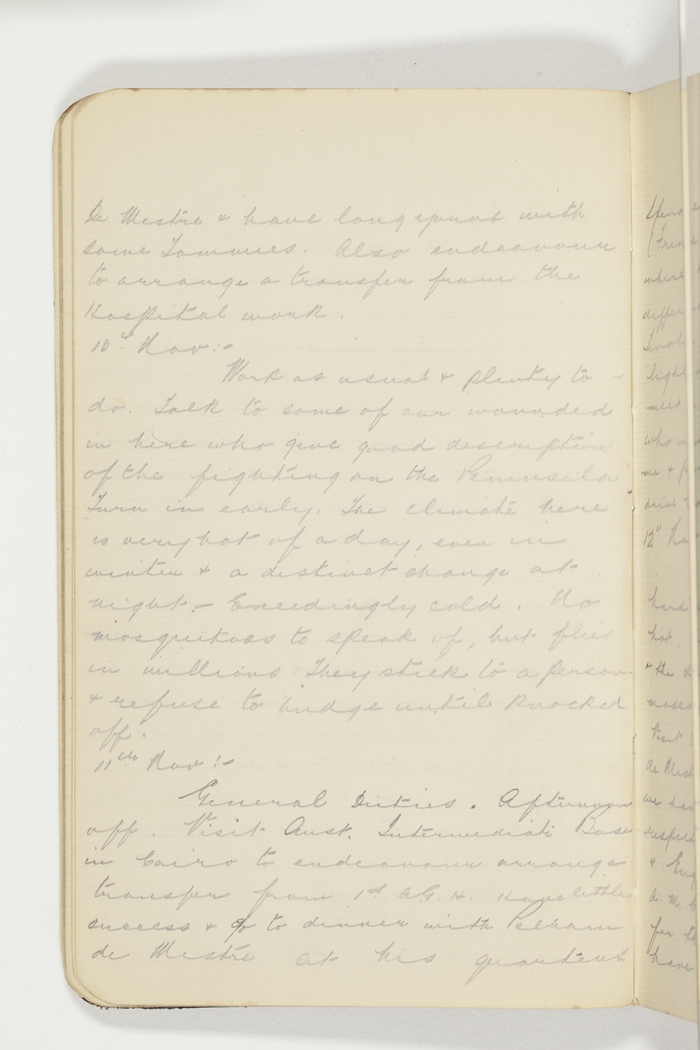 De Mestre & have long yarns with
some Tommies. Also endeavour
to arrange a transfer from the
Hospital work.
10th Nov:-
Work as usual & plenty to -
do. Talk to some of our wounded
in here who give good description
of the fighting on the Peninsula
Turn in early. The climate here
is very hot of a day, even in
winter & a distinct change at
night - Exceedingly cold. No
mosquitoes to speak of, but flies
in millions. They stick to a person
& refuse to budge until knocked
off.
11th Nov:-
General Duties. Afternoon
off. Visit Aust. Intermediate Base
in Cairo to endeavour arrange
transfer from 1st A.G.H. Have little
success & go to dinner with Pelham
de Mestre at his quarters
12th
& the